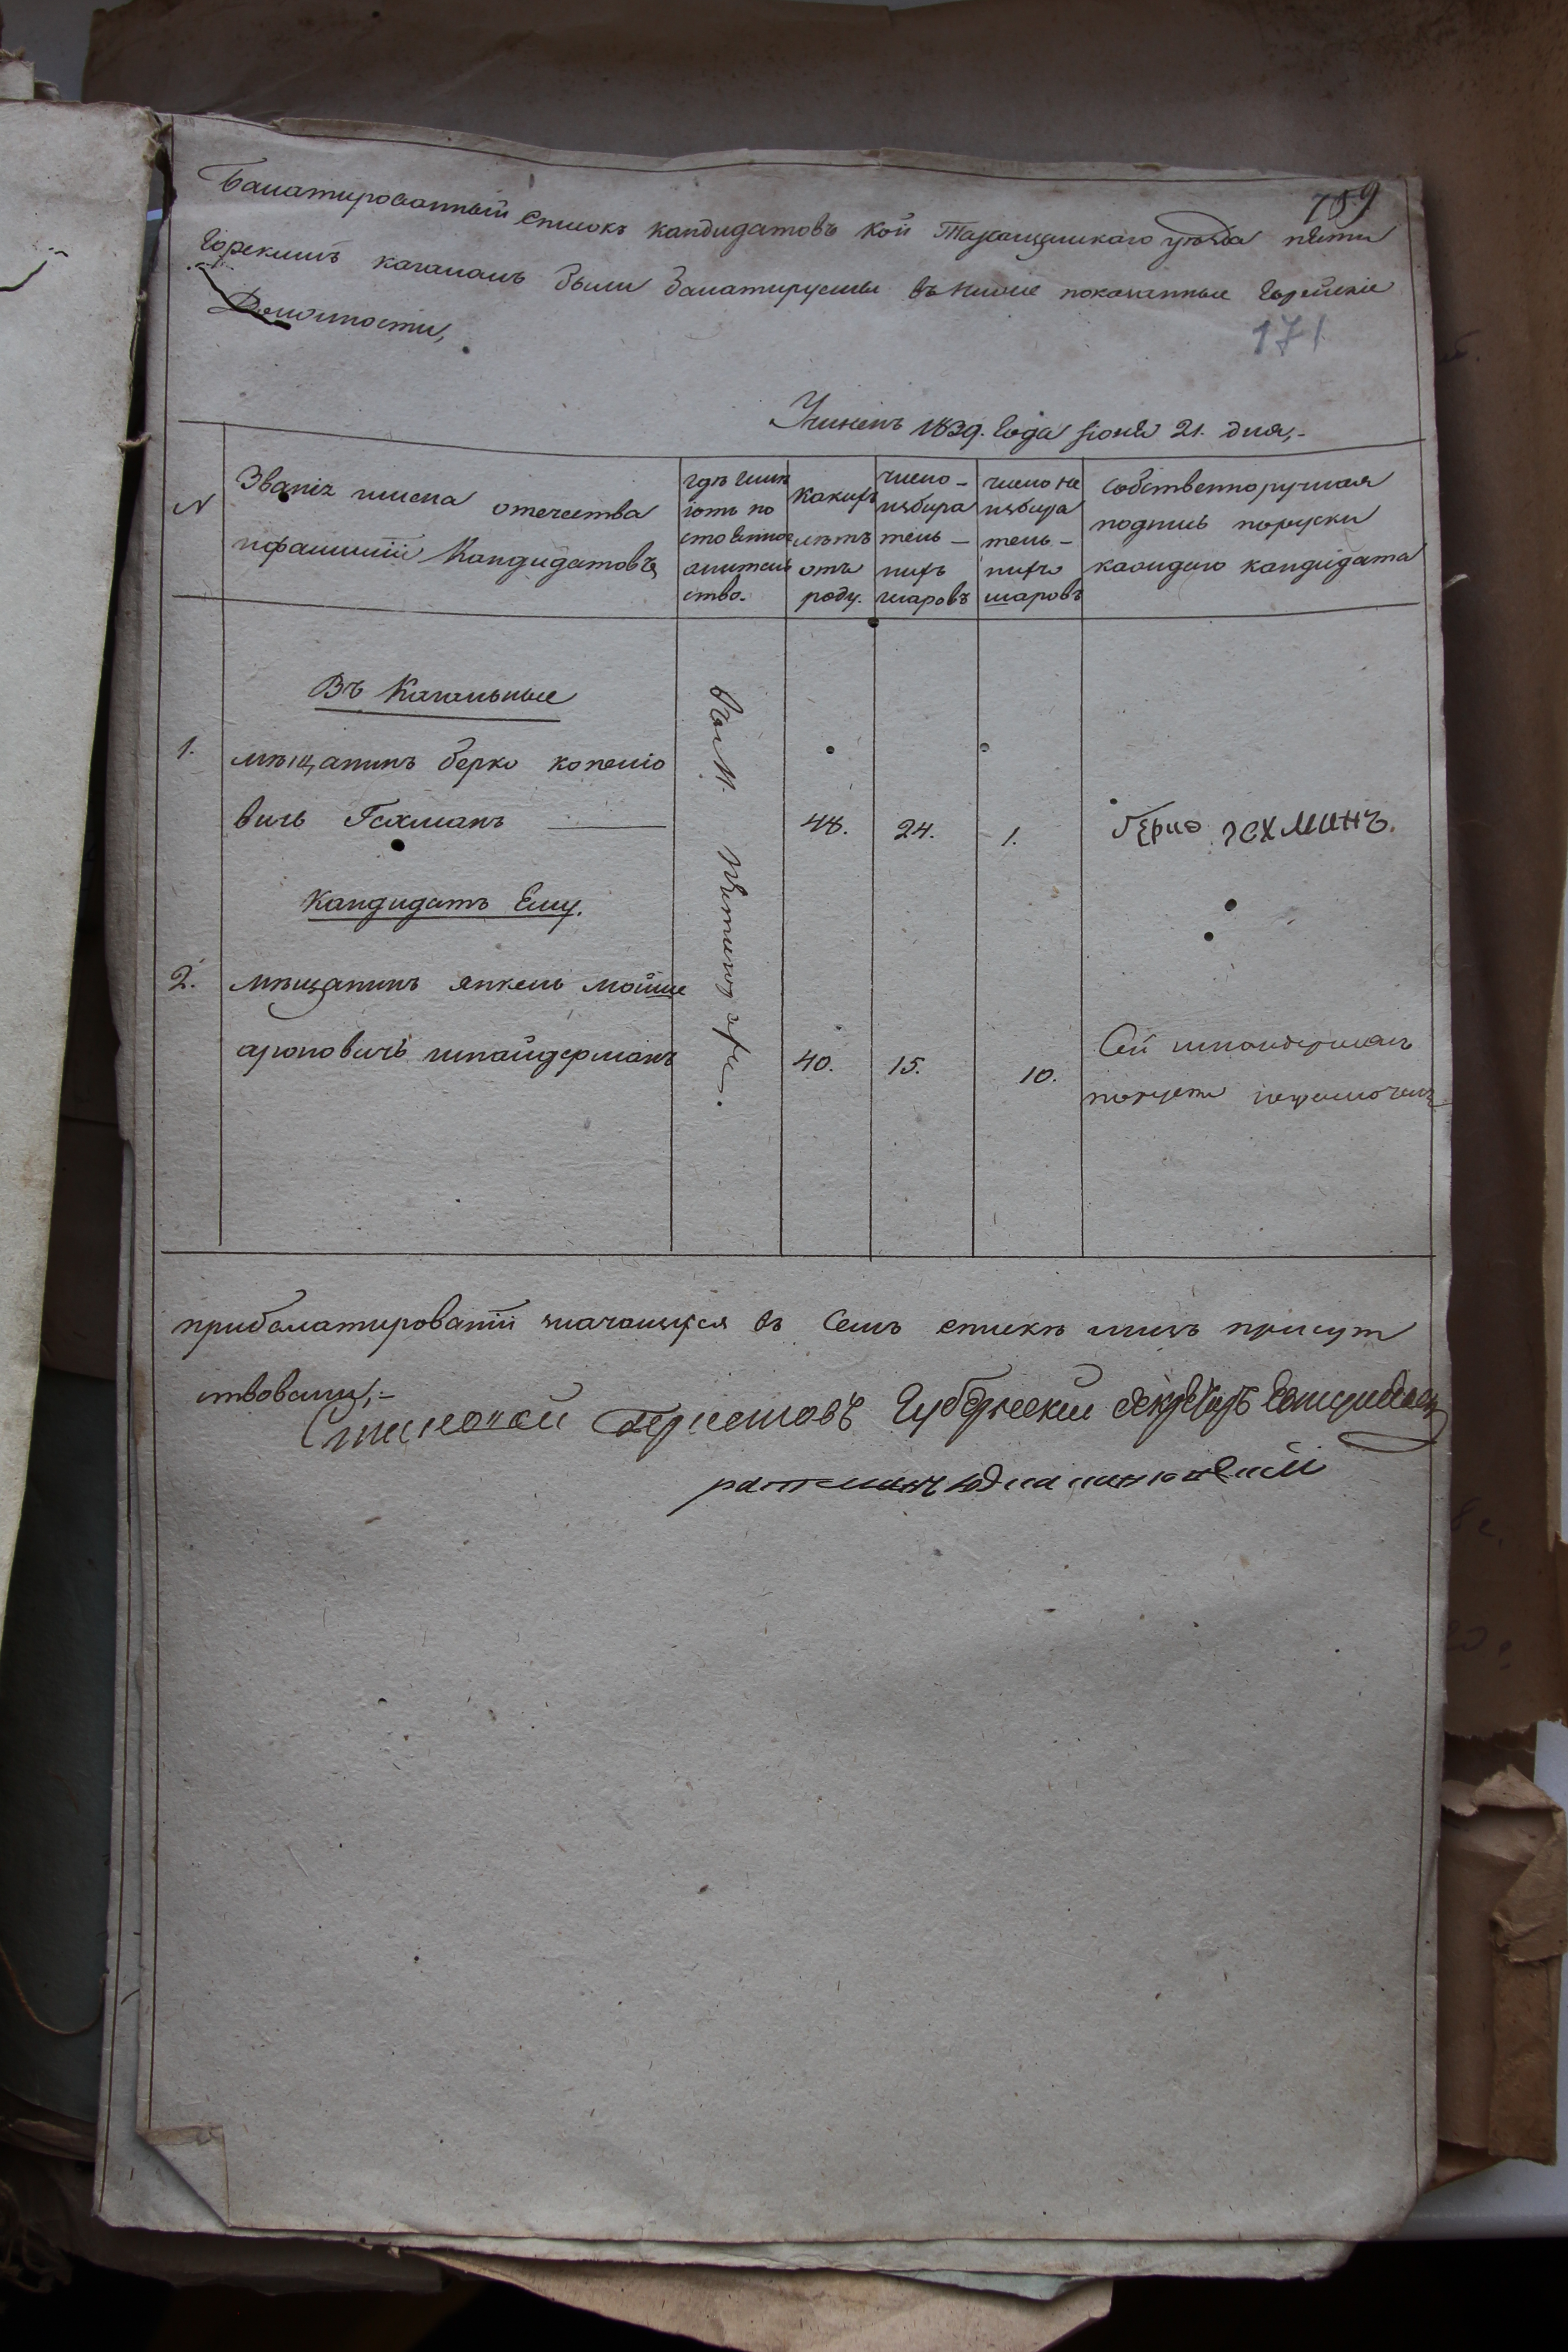 759
Балатированный Списокъ кандидатовъ кои Таращанскаго уезда пяти
Горскимъ кагаламъ были балатируемы въ ниже показанные Еврейские
Должности,
171
Учиненъ 1839. Года Іюня 21. дня,-
N
Званіе имена отечества
ифамилии Кандидатовъ
гдъ имѣ
іотъ по
стоянное
жител
ство.
какихъ
лѣтъ
отъ
роду.
число-
избира
тель-
ныхъ
шаровъ
число не
избира
тель-
ныхъ
шаровъ
собственноручная
подпись поруски
каждаго кандидата
Въ Кагальные
1.
мѣщанинъ берко копеліо
вичъ Гехманъ
48.
24.
1.
Берко гехманъ.
Кандидатъ Ему.
2.
мѣщанинъ янкель мойше
ароновичъ шнайдерманъ
40.
15.
10.
Сей шнайдерманъ
Въ М. Пятигорах.
прибалатированіи значащихся въ Семъ спискѣ лицъ присут
ствовали,-
Губернский секретарь
ратманъ